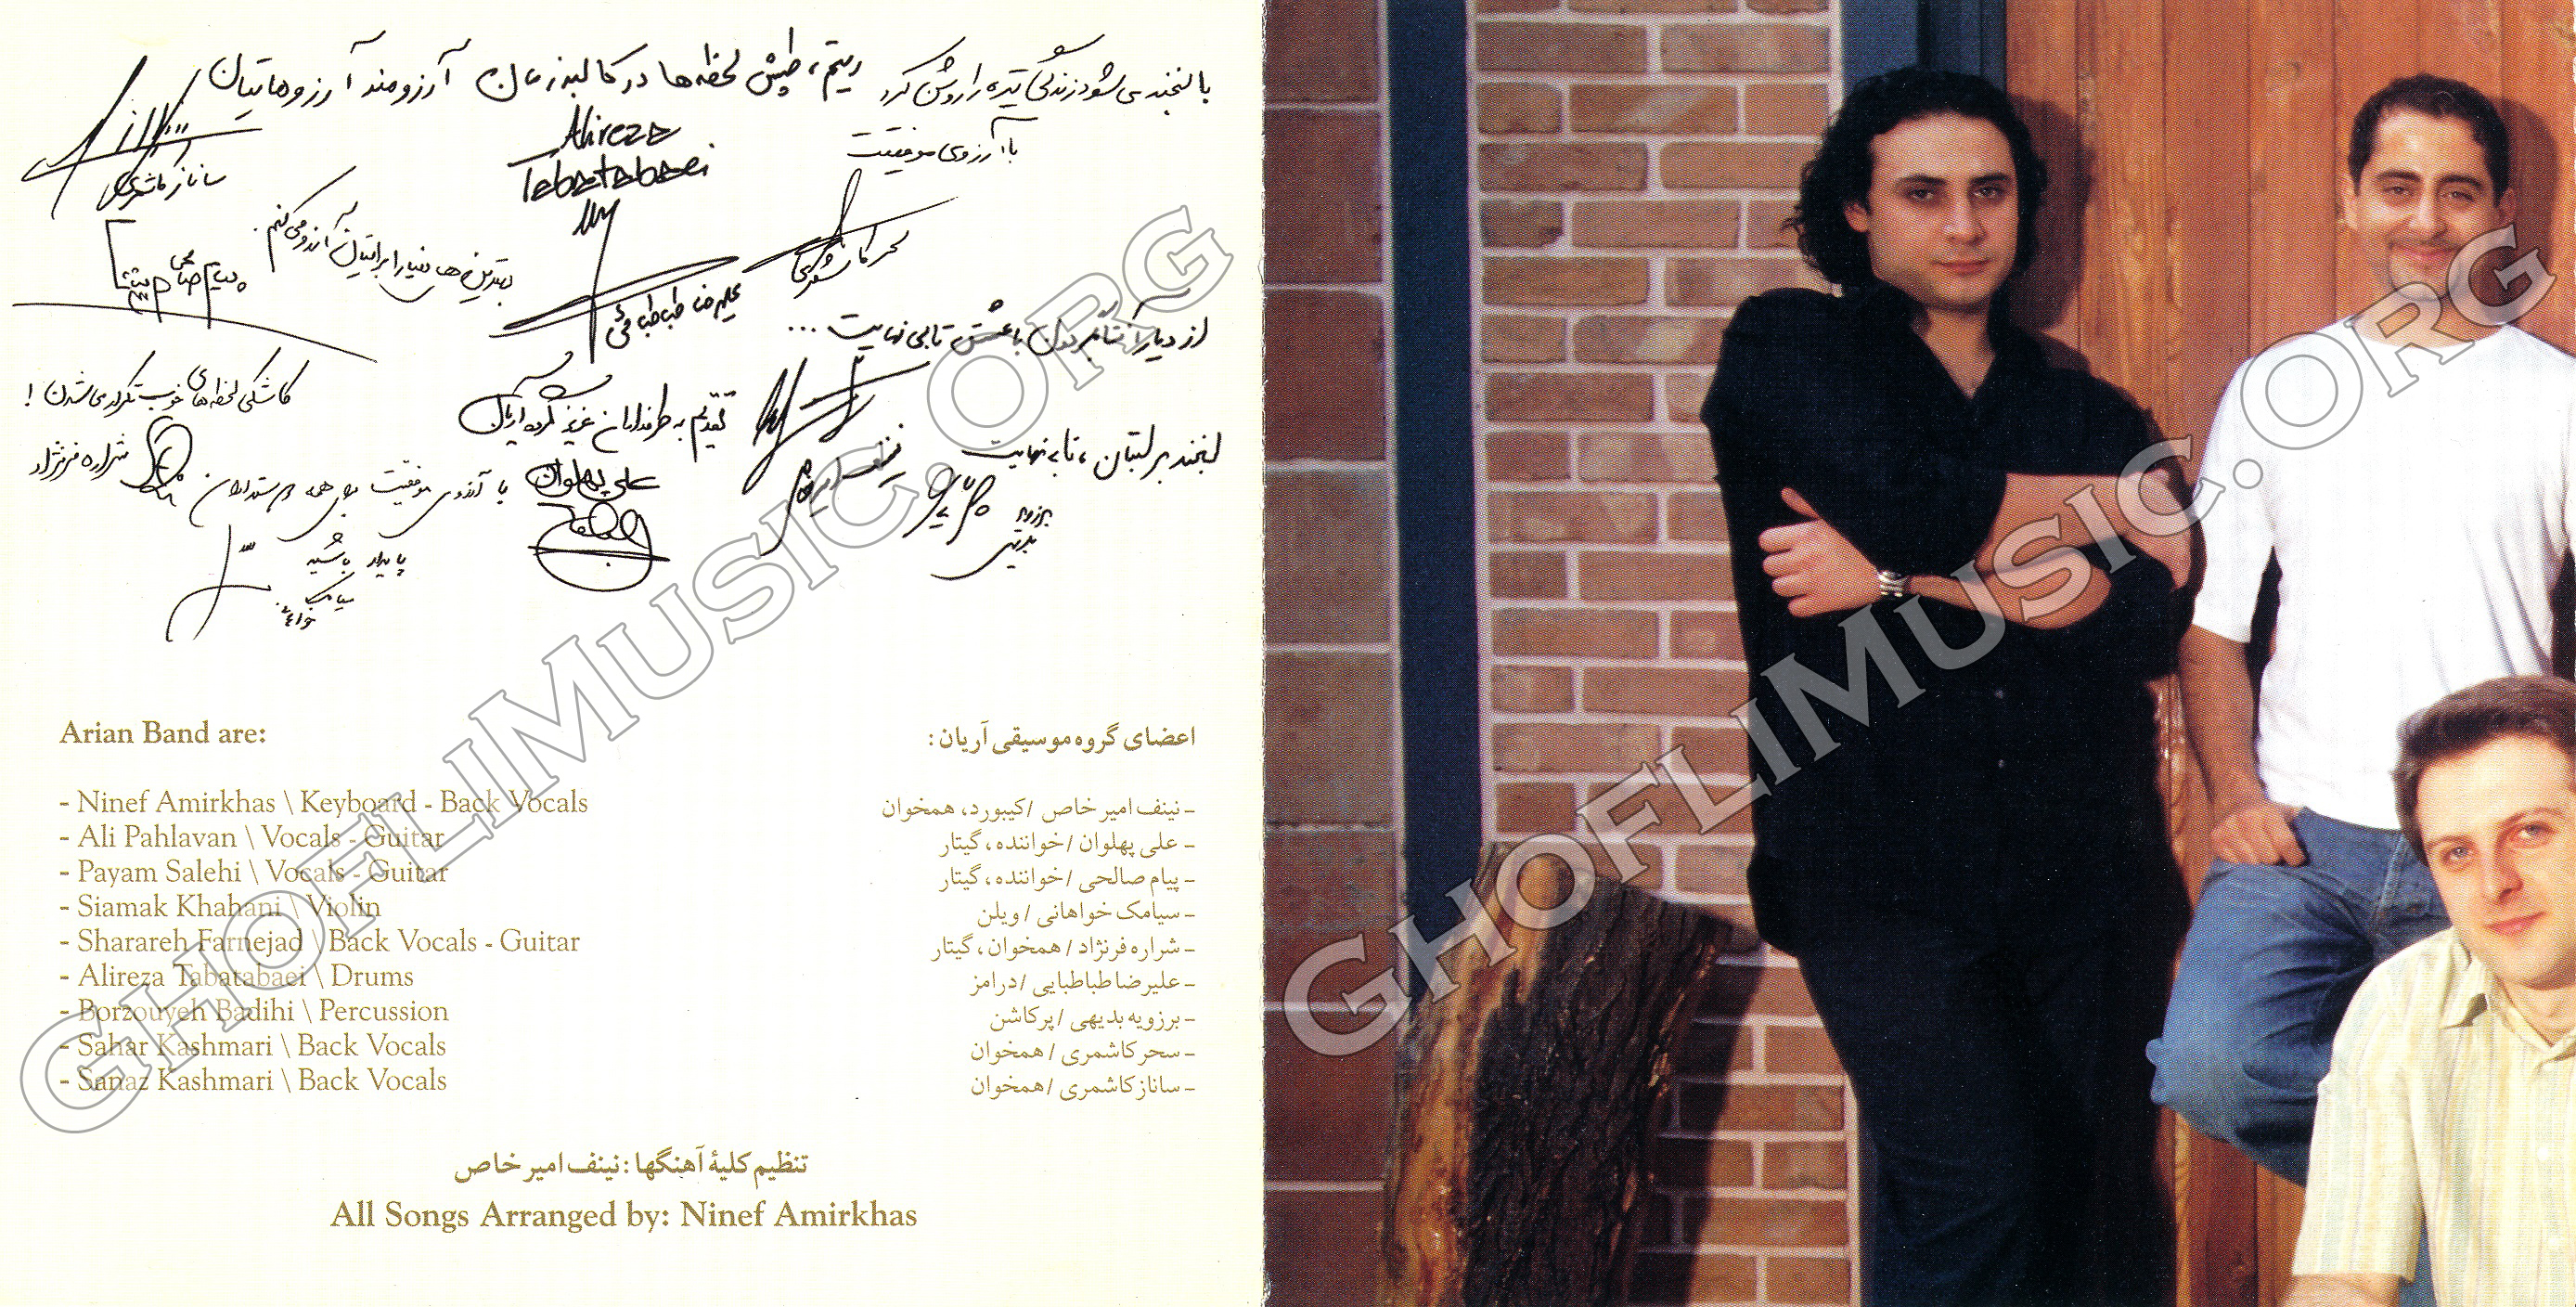 با لبخند می شود زندگی تیره را روشن کرد
با آرزوی موفقیت
سحر کاشمری
ریتم، طپش لحظه ها در کالبد زمان
Alireza
Tabatabaei
علیرضا طباطبائی
آرزومند آرزوهاتیان
ساناز کاشمری
بهترین های دنیا را براتیان آرزو می کنم.
پیام صالحی
از دیار
با عشق تا بی نهایت ...
لبخند بر لبتان، تا بی نهایت
برزویه
بدیهی
تقدیم به طرفداران عزیز گروه آریان
علی پهلوان
کاشکی لحظه های خوب تکرار می شدن !
شراره فرنژاد
با آرزوی موفقیت برای همه دوستداران
پایدار باشید
سیامک
Arian Band are:
- Ninef Amirkhas \ Keyboard - Back Vocals
- Ali Pahlavan \ Vocals - Guitar
- Payam Salehi \ Vocals - Guitar
- Siamak Khahani \ Violin
- Sharareh Farnejad \ Back Vocals - Guitar
- Alireza Tabatabaei \ Drums
- Borzouyeh Badihi \ Percussion
- Sahar Kashmari \ Back Vocals
- Sanaz Kashmari \ Back Vocals
اعضای گروه موسیقی آریان :
- نینف امیر خاص / کیبورد، همخوان
- علی پهلوان / خواننده ، گیتار
- پیام صالحی / خواننده ، گیتار
- سیامک خواهانی / ویلن
- شراره فرنژاد / همخوان ، گیتار
- علیرضا طباطبایی / درامز
- برزویه بدیهی / پرکاشن
- سحر کاشمری / همخوان
- ساناز کاشمری / همخوان
تنظیم کلیهٔ آهنگها : نینف امیر خاص
All Songs Arranged by: Ninef Amirkhas
GHOFLIMUSIC.ORG
GHOFLIMUSIC.ORG